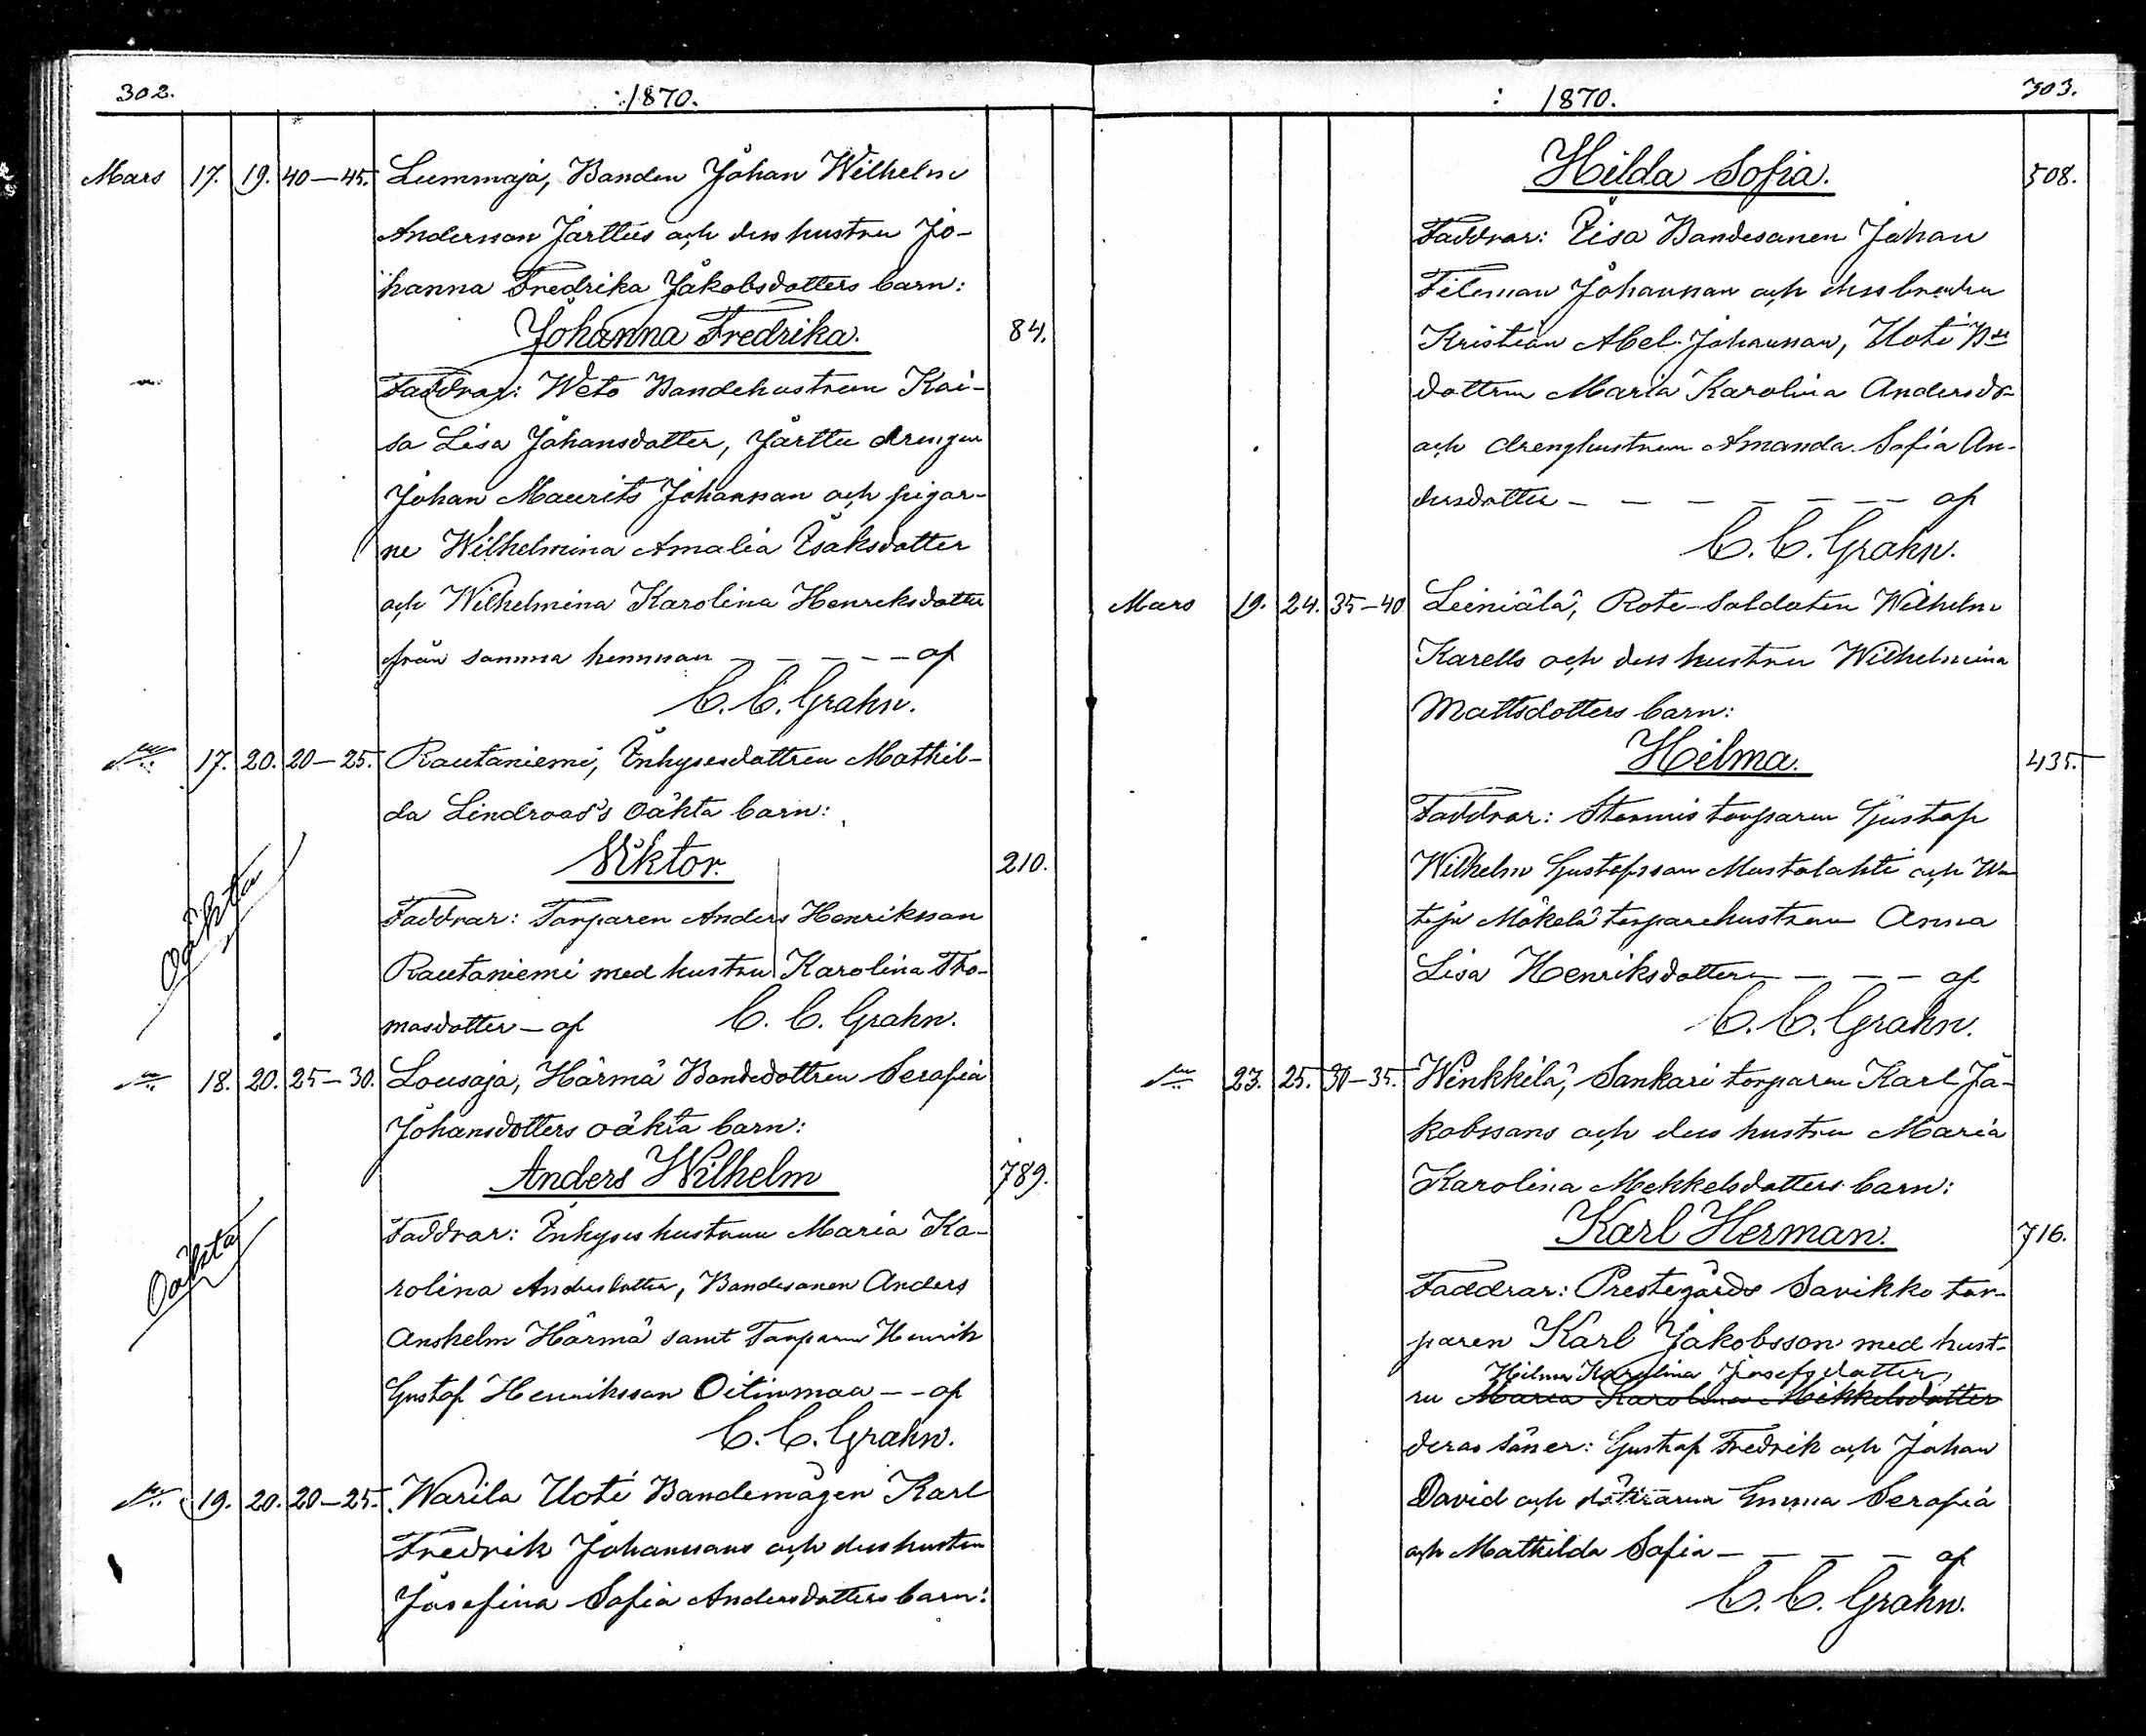 302.
1870.
Mars 17. 19. 40-45. Lummaja, Banden Johan Wilhelm
Andersson Jarttus och dess hustru Jo-
hanna Fredrika Jakobsdotters barn:
Johanna Fredrika. 84.
Faddrar: Weto Bandehustrun Kai-
sa Lisa Johansdotter, Jarttu drengen
Johan Maurits Johansson och pigor-
ne Wilhelmina Amalia Isaksdotter
och Wilhelmina Karolina Henriksdotter
från samma hemman - - - - - af
C. C. Grahn.
17. 20. 20-25. Rautaniemi, Inhysesdottren Mathil-
da Lindroos's oäkta barn:
Viktor. 210.
Oäkta
Faddrar: Torparen Anders Henriksson
Rautaniemi med hustru Karolina Tho-
masdotter - af C. C. Grahn.
18. 20. 25-30. Lousaja, Härmä Bandedottren Serafia
Johansdotters oäkta barn:
Anders Wilhelm 789.
Oäkta
Faddrar: Inhyses hustrun Maria Ka-
rolina Andersdotter, Bandesonen Anders
Anshelm Härmä samt Torparen Henrik
Gustaf Henriksson Oitinmaa - - af
C. C. Grahn.
19. 20. 20-25. Warila Uoti Bandemågen Karl
Fredrik Johanssons och dess hustru
Josefina Sofia Andersdotters barn:
1870.
303.
Hilda Sofia. 508.
Faddrar: Iisa Bandesonen Johan
Fileman Johansson och dess broder
Kristian Abel Johansson, Uoti Bde
dottren Maria Karolina Andersdr
och drenghustrun Amanda Sofia An-
dersdotter - - - - - - - af
C. C. Grahn.
Mars 19. 24. 35-40 Leiniälä, Rote-Soldaten Wilhelm
Karells och dess hustru Wilhelmina
Mattsdotters barn:
Hilma. 435.
Faddrar: Stormis torparen Gustaf
Wilhelm Gustafsson Mustalahti och
Mäkelä torparehustrun Anna
Lisa Henriksdotter - - - - af
C. C. Grahn.
23. 25. 30-35. Winkkilä, Sankari torparen Karl Ja-
kobssons och dess hustru Maria
Karolina Mekkelsdotters barn:
Karl Herman. 716.
Faddrar: Prestegårds Savikko tor-
paren Karl Jakobsson med hust-
Hilma Karolina Josefsdotter,
ru Maria Karolina Mekkelsdotter
deras söner: Gustaf Fredrik och Johan
David och döttrarna Emma Serafia
och Mathilda Sofia - - - - af
C. C. Grahn.